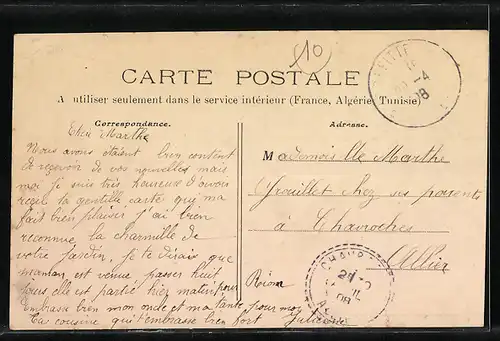 10
CARTE POSTALE
A utiliser seulement dans le service intérieur (France, Algérie, Tunisie)
Correspondance.
Chère Marthe
Nous avons étaient bien content
de recevoir de vos nouvelles mais
moi je suis très heureux d'avoir
reçu la gentille carte qui ma
fait bien plaisir j'ai bien
reconnue la charmille de
votre jardin, je te dirais que
maman est venue passer huit
jours elle est partie hier matin
Embrasse bien mon oncle et ma tante pour moi
Ta cousine qui t'embrasse bien fort
Adresse.
Mademoiselle Marthe
chez ses parents
à Chavroches
Allier
-4
08
CHAVR
21
08